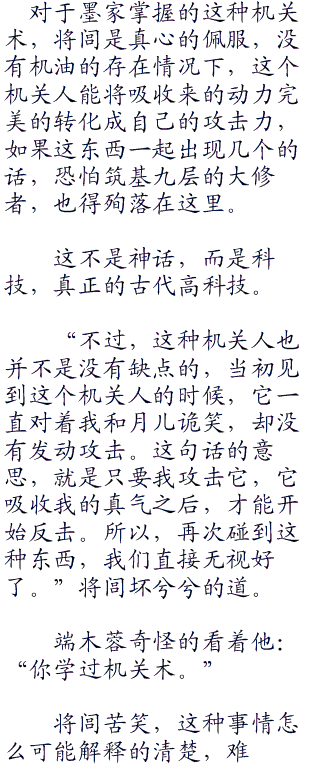 对于墨家掌握的这种机关
术，将闾是真心的佩服，没
有机油的存在情况下，这个
机关人能将吸收来的动力完
美的转化成自己的攻击力，
如果这东西一起出现几个的
话，恐怕筑基九层的大修
者，也得殉落在这里。
这不是神话，而是科
技，真正的古代高科技。
“不过，这种机关人也
并不是没有缺点的，当初见
到这个机关人的时候，它一
直对着我和月儿诡笑，却没
有发动攻击。这句话的意
思，就是只要我攻击它，它
吸收我的真气之后，才能开
始反击。所以，再次碰到这
种东西，我们直接无视好
了。”将闾坏兮兮的道。
端木蓉奇怪的看着他：
“你学过机关术。”
将闾苦笑，这种事情怎
么可能解释的清楚，难